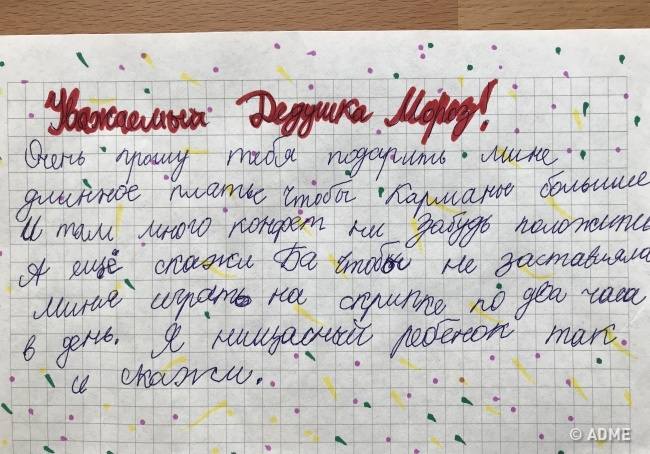 Уважаемый Дедушка Мороз!
Очень прошу тебя подарить мине
длинное платье чтобы карманы большие
И там много конфет ни забудь положить
А ещё скажи Ба чтобы не заставляла
минья играть на скрипке по два часа
в день. Я нищасный ребёнок так
и скажи.
© ADME